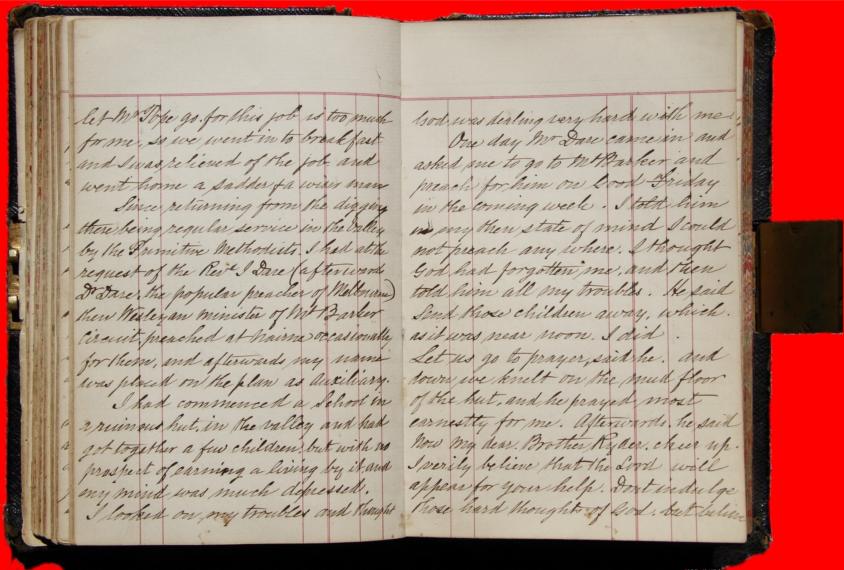 let Mr Pope go. for this job is too much
for me, so we went in to breakfast
and I was relieved of the job and
went home a sadder & a wiser man
Since returning from the diggings
there being regular service in the Valley
by the Primitive Methodists, I had at the
request of the Revd. J Dare (afterwards
Dr Dare, the popular preacher of Melbourne)
then Wesleyan Minister of Mt Barker
Circuit, preached at Nairne occasionally
for them, and afterwards my name
was placed on the plan as Auxiliary.
I had commenced a School in
a ruinous hut, in the valley and had
got together a few children, but with no
prospect of earning a living by it and
my mind was much depressed.
I looked on, my troubles and thought
God was dealing very hard with me.
One day Mr Dare came in and
asked me to go to Mt Barker and
preach for him on Good Friday
in the coming week. I told him
in my then state of mind I could
not preach any where. I thought
God had forgotten me, and then
told him all my troubles. He said
Send those children away, which.
as it was near noon. I did.
Let us go to prayer, said he. and
down we knelt on the mud floor
of the hut, and he prayed most
earnestly for me. Afterwards he said
Now my dear Brother Ryder. cheer up.
I verily believe that the Lord will
appear for your help. Dont indulge
those hard thoughts of God. but believe